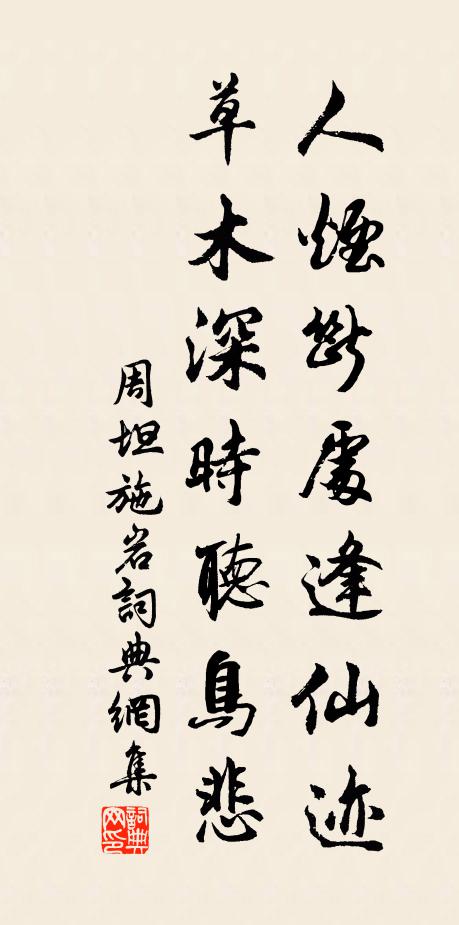 人煙斷處逢仙迹
草木深時聽鳥悲
周坦施岩詞典網集
詞典网印